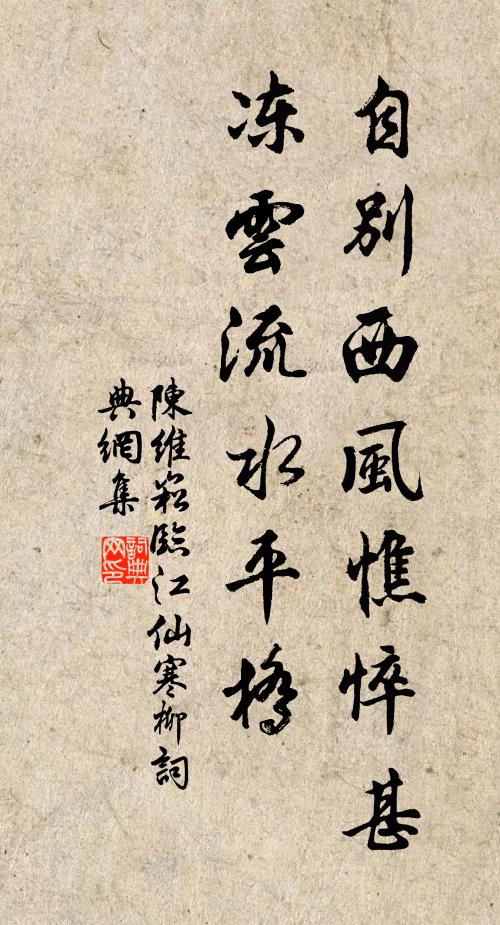 自別西風憔悴甚
冻雲流水平橋
陳維崧臨江仙寒柳詞
典網集
詞典
网印